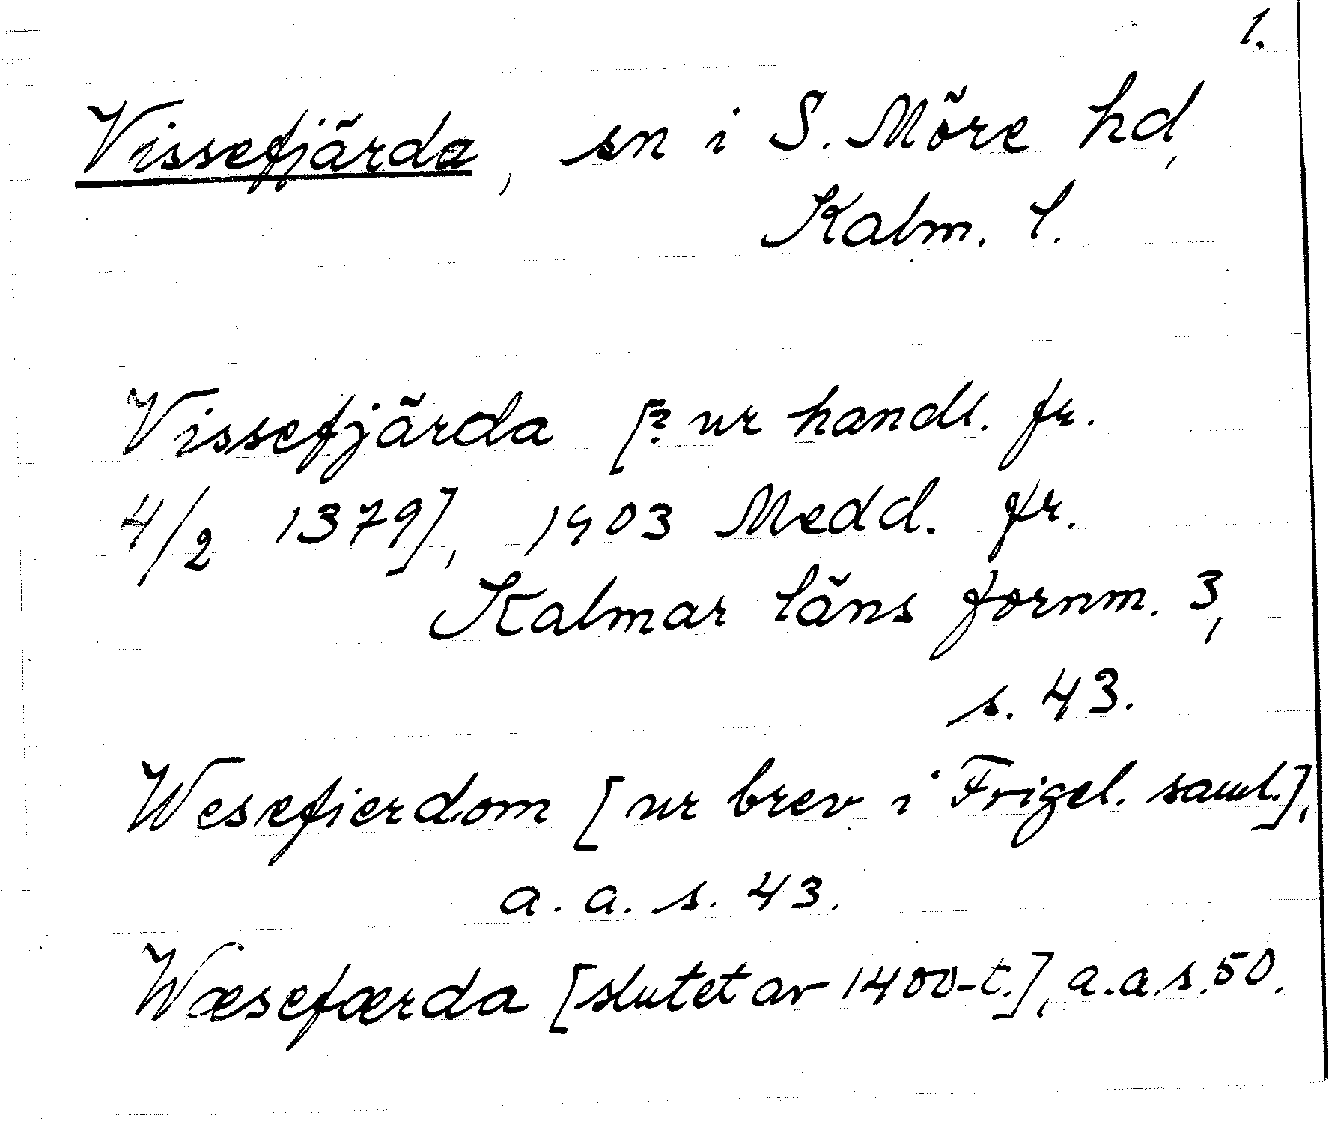 1.
Vissefjärda, sn i S. Möre hd,
Kalm. l.
Vissefjärda [? ur handl. fr.
4/2 1379], 1903 Medd. fr.
Kalmar läns fornm. 3,
s. 43.
Wesefierdom [ur brev i Frigel. saml.],
a. a. s. 43.
Wæsefærda [slutet av 1400-t.], a.a.s.50.